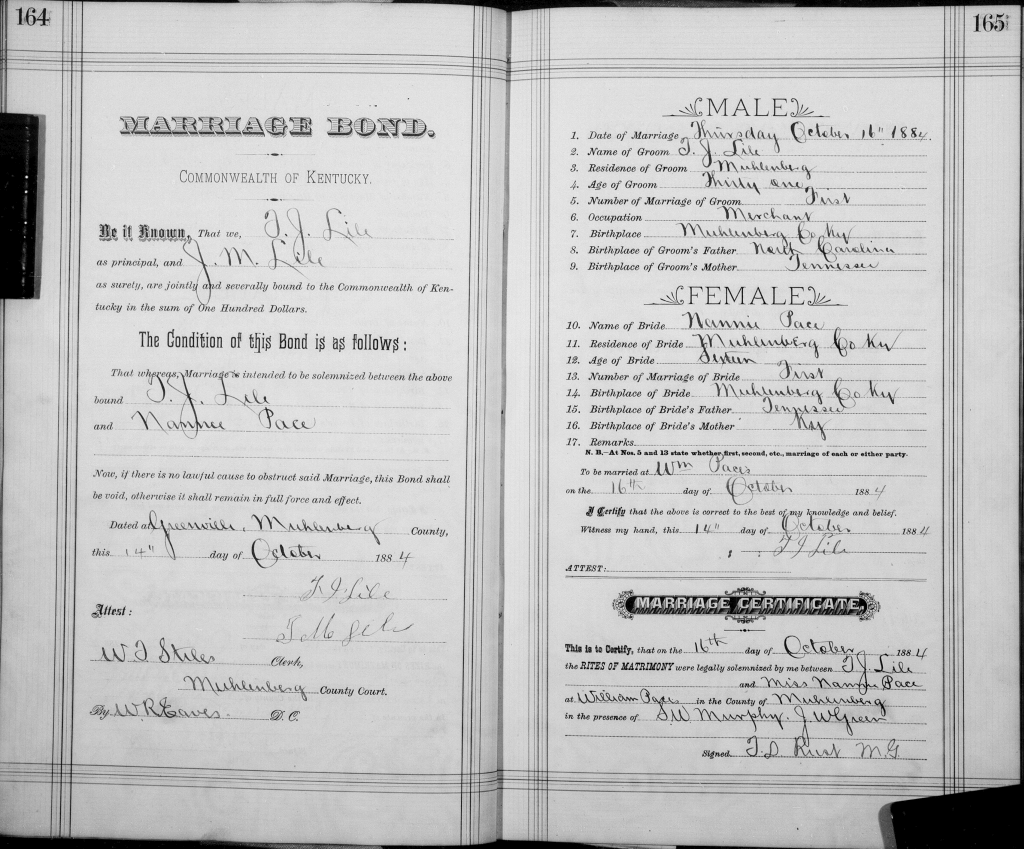 164
MARRIAGE BOND.
COMMONWEALTH OF KENTUCKY.
Be it Known, That we, T. J. Lile
as principal, and J. M. Lile
as surety, are jointly and severally bound to the Commonwealth of Ken-
tucky in the sum of One Hundred Dollars.
The Condition of this Bond is as follows:
That whereas, Marriage is intended to be solemnized between the above
bound T. J. Lile
and Nannie Pace
Now, if there is no lawful cause to obstruct said Marriage, this Bond shall
be void, otherwise it shall remain in full force and effect.
Dated at Greenville, Muhlenberg County,
this 14" day of October 1884
T J Lile
Attest:
W T Stiles Clerk,
Muhlenberg County Court.
By W. R. Eaves. D. C.
165
MALE
1. Date of Marriage Thursday October 16" 1884.
2. Name of Groom T. J. Lile
3. Residence of Groom Muhlenberg
4. Age of Groom Thirty one
5. Number of Marriage of Groom First
6. Occupation Merchant
7. Birthplace Muhlenberg Co Ky
8. Birthplace of Groom's Father North Carolina
9. Birthplace of Groom's Mother Tennessee
FEMALE
10. Name of Bride Nannie Pace
11. Residence of Bride Muhlenberg Co Ky
12. Age of Bride
13. Number of Marriage of Bride First
14. Birthplace of Bride Muhlenberg Co Ky
15. Birthplace of Bride's Father Tennessee
16. Birthplace of Bride's Mother Ky
17. Remarks
N. B.—At Nos. 5 and 13 state whether first, second, etc., marriage of each or either party.
To be married at Wm Paces
on the 16th day of October 1884
I Certify that the above is correct to the best of my knowledge and belief.
Witness my hand, this 14" day of October 1884
T J Lile
ATTEST:
MARRIAGE CERTIFICATE.
This is to Certify, that on the 16th day of October 1884
the RITES OF MATRIMONY were legally solemnized by me between T. J. Lile
and Miss Nannie Pace
at William Paces in the County of Muhlenberg
in the presence of S W Murphy. J W Green
Signed. T. D. Rust M. G